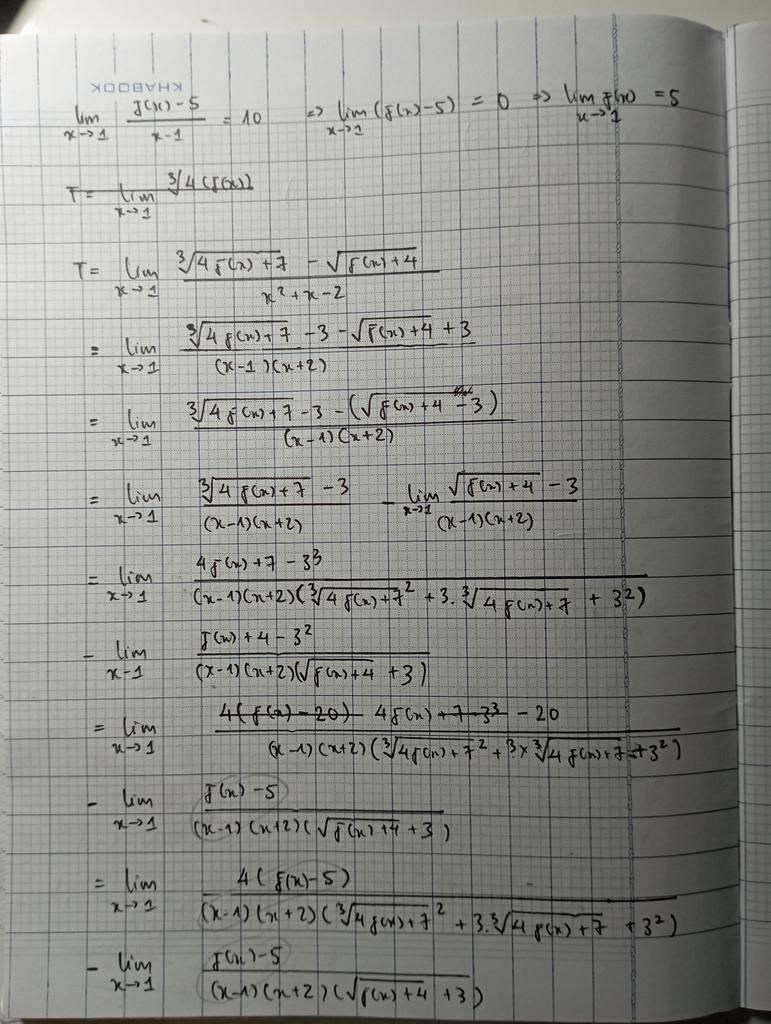 KHABOOK
lim_{x→1} (f(x)-5)/(x-1) = 10 ⇒ lim_{x→1} (f(x)-5) = 0 ⇒ lim_{x→1} f(x) = 5
T = lim_{x→1} ∛4(f(x))
T = lim_{x→1} (∛(4f(x)+7) - √(f(x)+4))/(x²+x-2)
= lim_{x→1} (∛(4f(x)+7) - 3 - √(f(x)+4) + 3)/((x-1)(x+2))
= lim_{x→1} (∛(4f(x)+7) - 3 - (√(f(x)+4) - 3))/((x-1)(x+2))
= lim_{x→1} (∛(4f(x)+7) - 3)/((x-1)(x+2)) - lim_{x→1} (√(f(x)+4) - 3)/((x-1)(x+2))
= lim_{x→1} (4f(x)+7-3³)/((x-1)(x+2)(∛(4f(x)+7)² + 3.∛(4f(x)+7) + 3²))
- lim_{x-1} (f(x)+4-3²)/((x-1)(x+2)(√(f(x)+4) + 3))
= lim_{x→1} (4(f(x)-20) 4f(x)+7-3³ - 20)/((x-1)(x+2)(∛(4f(x)+7)² + 3×∛(4f(x)+7) + 3²))
- lim_{x→1} (f(x)-5)/((x-1)(x+2)(√(f(x)+4) + 3))
= lim_{x→1} 4(f(x)-5)/((x-1)(x+2)(∛(4f(x)+7)² + 3.∛(4f(x)+7) + 3²))
- lim_{x→1} (f(x)-5)/((x-1)(x+2)(√(f(x)+4) + 3))